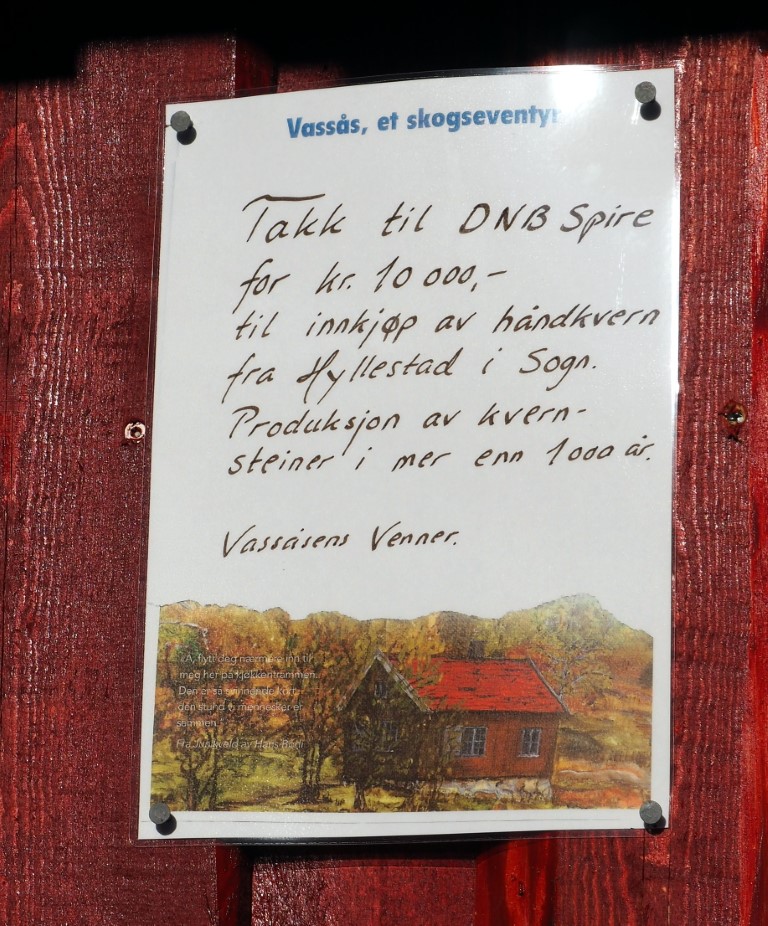 Vassås, et skogseventyr
Takk til DNB Spire
for kr. 10 000,-
til innkjøp av håndkvern
fra Hyllestad i Sogn.
Produksjon av kvern-
steiner i mer enn 1000 år.
Vassåsens Venner.
«Å, flytt deg nærmere inn til
meg her på kjøkkentrammen.
Den er så svinnende kort
den stund vi mennesker er
sammen.»
Fra Junikveld av Hans Børli